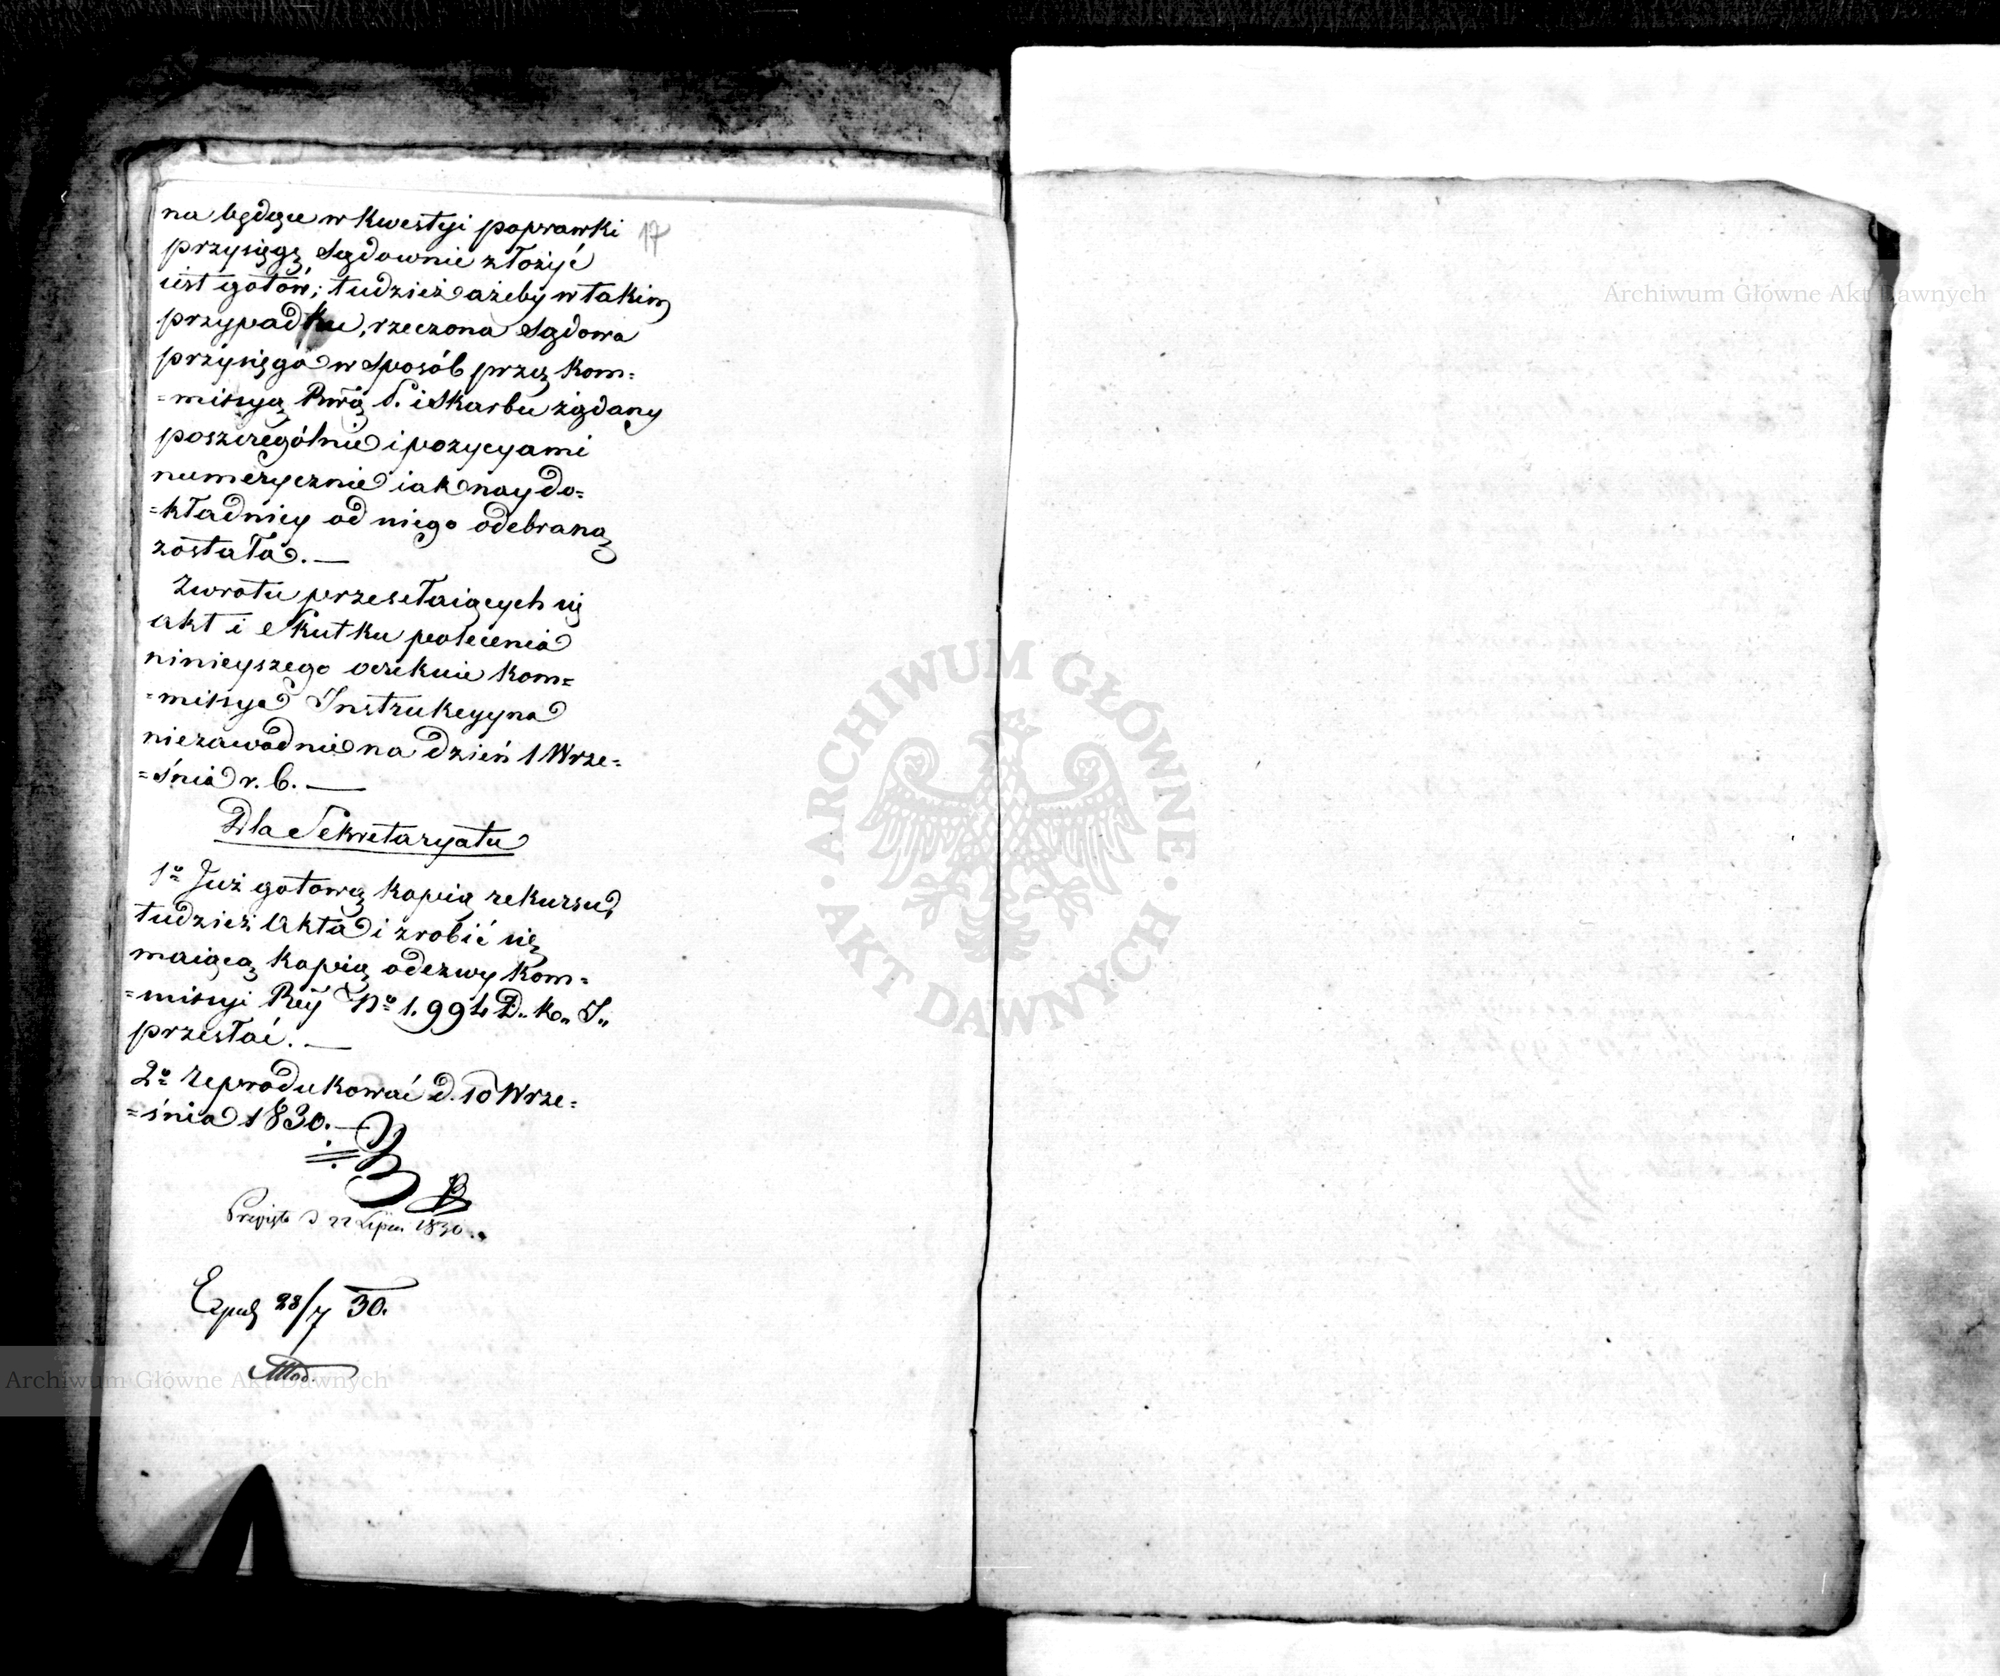 17
na będące w kwestyi poprawki
przysięgę Sądownie złożyć
iest gotów; tudzież ażeby w takim
przypadku, rzeczona Sądowa
przysięga w sposób przez Kom=
=missyą Rwą P. i Skarbu żądany
poszczególnie i pozycyami
numerycznie iak naydo=
=kładniey od niego odebraną
została. —
Zwrotu przesełaiących się
akt i skutku polecenia
ninieyszego oczekuie Kom=
=missya Instrukcyyna
niezawodnie na dzień 1 Wrze=
=śnia r. b. —
Dla Sekretaryatu
1o Już gotową kopią rekursu,
tudzież Akta i zrobić się
maiącą kopią odezwy Kom=
=missyi Rząd No 1.994 D.. K.. J..
przesłać. —
2o Reprodukować d. 10 Wrze=
=śnia 1830. —
Przyięto d 22 Lipca 1830
Exped 28/7 30.
ARCHIWUM GŁÓWNE
AKT DAWNYCH
Archiwum Główne Akt Dawnych
Archiwum Główne Akt Dawnych